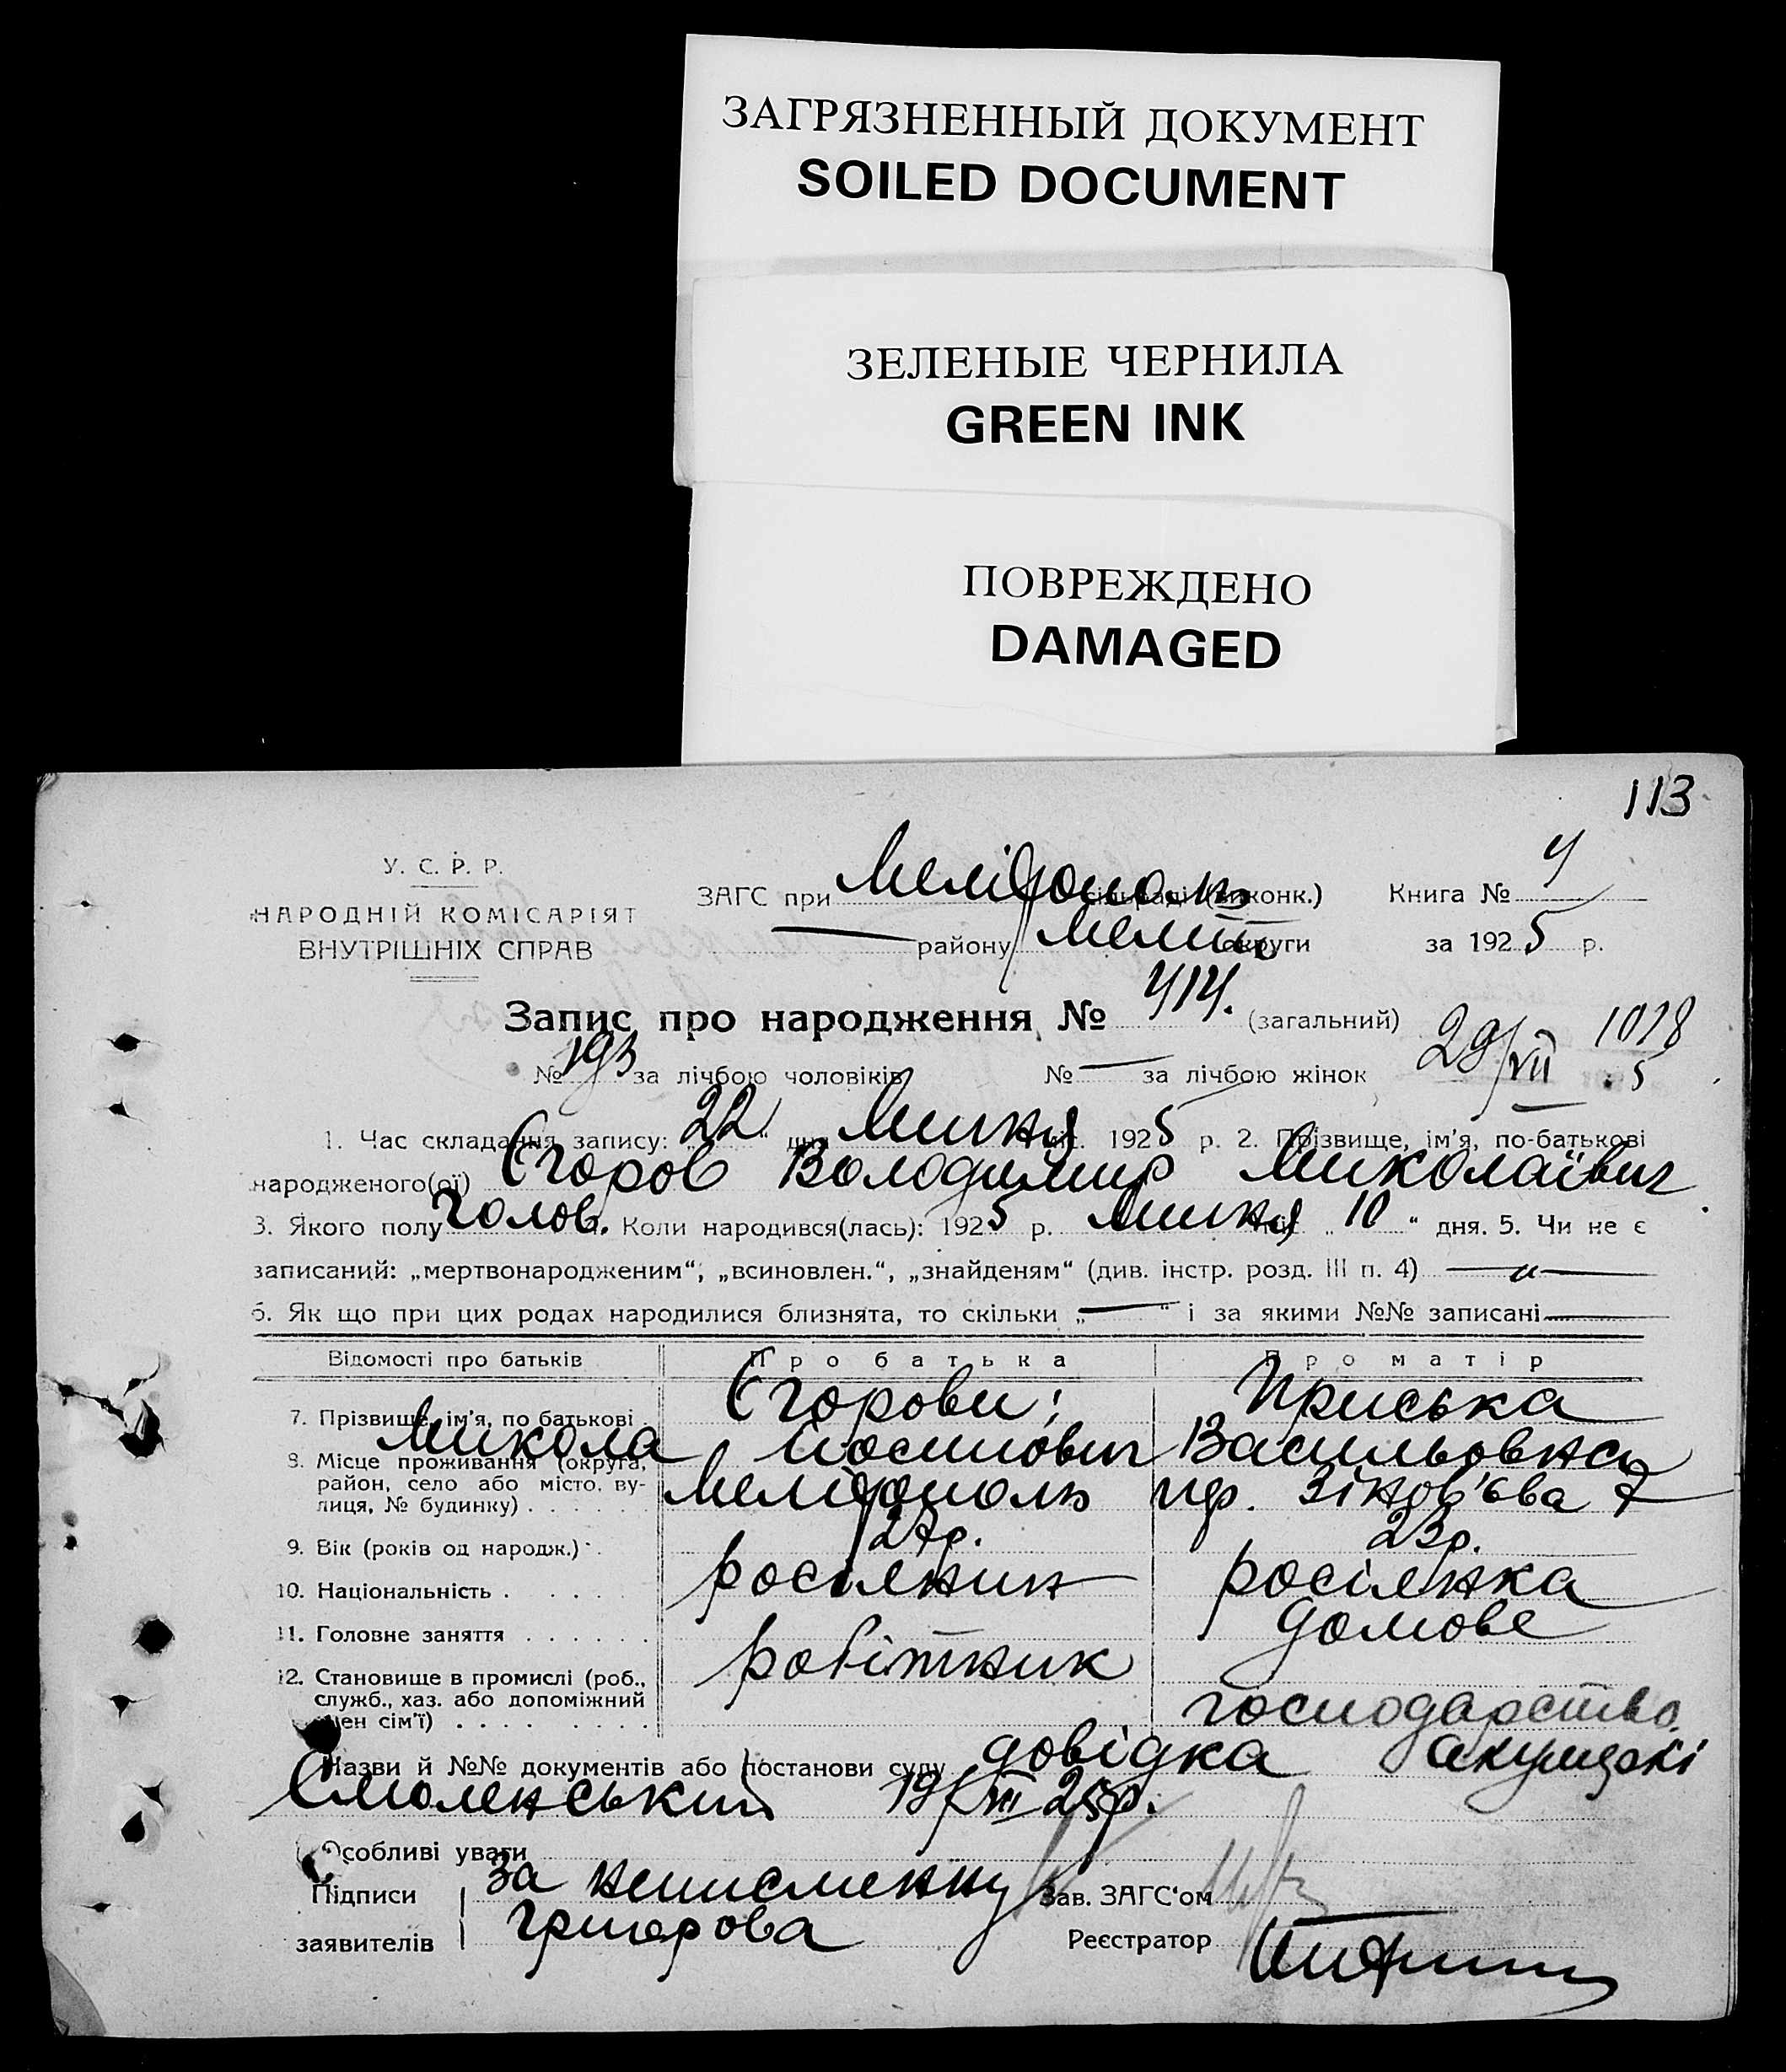 ЗАГРЯЗНЕННЫЙ ДОКУМЕНТ
SOILED DOCUMENT
ЗЕЛЕНЫЕ ЧЕРНИЛА
GREEN INK
ПОВРЕЖДЕНО
DAMAGED
113
У. С. Р. Р.
НАРОДНІЙ КОМІСАРІЯТ
ВНУТРІШНІХ СПРАВ
ЗАГС при Мелітополь сільраді (виконк.) Книга № 4
— району Меліт округи за 1925 р.
Запис про народження № 414. (загальний)
29/VII 1018
5
№ 193 за лічбою чоловіків № — за лічбою жінок
1. Час складання запису: „22“ дня Липня міс. 1925 р. 2. Прізвище, ім’я, по-батькові
народженого(ої) Єгоров Володимир Миколаївич
3. Якого полу чолов. Коли народився(лась): 1925 р. Липня міс. „10“ дня. 5. Чи не є
записаний: „мертвонародженим“; „всиновлен.“, „знайденям“ (див. інстр. розд. III п. 4) —"—
6. Як що при цих родах народилися близнята, то скільки „—“ і за якими №№ записані —
Відомості про батьків Про батька Про матір
7. Прізвище, ім’я, по батькові Єгорови: Микола Йосипович Приська Васильовна
8. Місце проживання (округа,
район, село або місто, ву-
лиця, № будинку) Мелітополь пр. Зінов'єва 7
9. Вік (років од народж.) 27р. 23р.
10. Національність росіянин росіянка
11. Головне заняття робітник домове господарство
12. Становище в промислі (роб.,
служб., хаз. або допоміжний
член сім’ї)
Назви й №№ документів або постанови суду довідка акушерки
Смоленський 19/VII 25р.
Особливі уваги
Підписи за неписьменну Зав. ЗАГС‘ом
заявителів Реєстратор